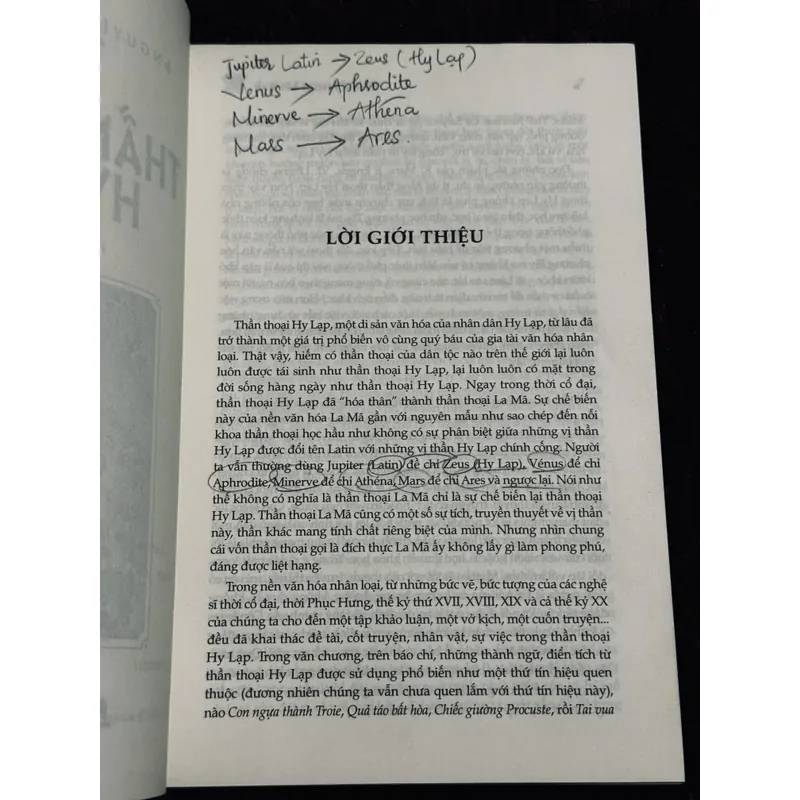 NGUYỄ
THẦN
HY
Jupiter Latin → Zeus (Hy Lạp)
Venus → Aphrodite
Minerve → Athena
Mass → Ares.
LỜI GIỚI THIỆU
Thần thoại Hy Lạp, một di sản văn hóa của nhân dân Hy Lạp, từ lâu đã
trở thành một giá trị phổ biến vô cùng quý báu của gia tài văn hóa nhân
loại. Thật vậy, hiếm có thần thoại của dân tộc nào trên thế giới lại luôn
luôn được tái sinh như thần thoại Hy Lạp, lại luôn luôn có mặt trong
đời sống hàng ngày như thần thoại Hy Lạp. Ngay trong thời cổ đại,
thần thoại Hy Lạp đã “hóa thân” thành thần thoại La Mã. Sự chế biến
này của nền văn hóa La Mã gần với nguyên mẫu như sao chép đến nỗi
khoa thần thoại học hầu như không có sự phân biệt giữa những vị thần
Hy Lạp được đổi tên Latin với những vị thần Hy Lạp chính cống. Người
ta vẫn thường dùng Jupiter (Latin) để chỉ Zeus (Hy Lạp), Vénus để chỉ
Aphrodite, Minerve để chỉ Athéna, Mars để chỉ Ares và ngược lại. Nói như
thế không có nghĩa là thần thoại La Mã chỉ là sự chế biến lại thần thoại
Hy Lạp. Thần thoại La Mã cũng có một số sự tích, truyền thuyết về vị thần
này, thần khác mang tính chất riêng biệt của mình. Nhưng nhìn chung
cái vốn thần thoại gọi là đích thực La Mã ấy không lấy gì làm phong phú,
đáng được liệt hạng.
Trong nền văn hóa nhân loại, từ những bức vẽ, bức tượng của các nghệ
sĩ thời cổ đại, thời Phục Hưng, thế kỷ thứ XVII, XVIII, XIX và cả thế kỷ XX
của chúng ta cho đến một tập khảo luận, một vở kịch, một cuốn truyện...
đều đã khai thác đề tài, cốt truyện, nhân vật, sự việc trong thần thoại
Hy Lạp. Trong văn chương, trên báo chí, những thành ngữ, điển tích từ
thần thoại Hy Lạp được sử dụng phổ biến như một thứ tín hiệu quen
thuộc (đương nhiên chúng ta vẫn chưa quen lắm với thứ tín hiệu này),
nào Con ngựa thành Troie, Quả táo bất hòa, Chiếc giường Procuste, rồi Tai vua